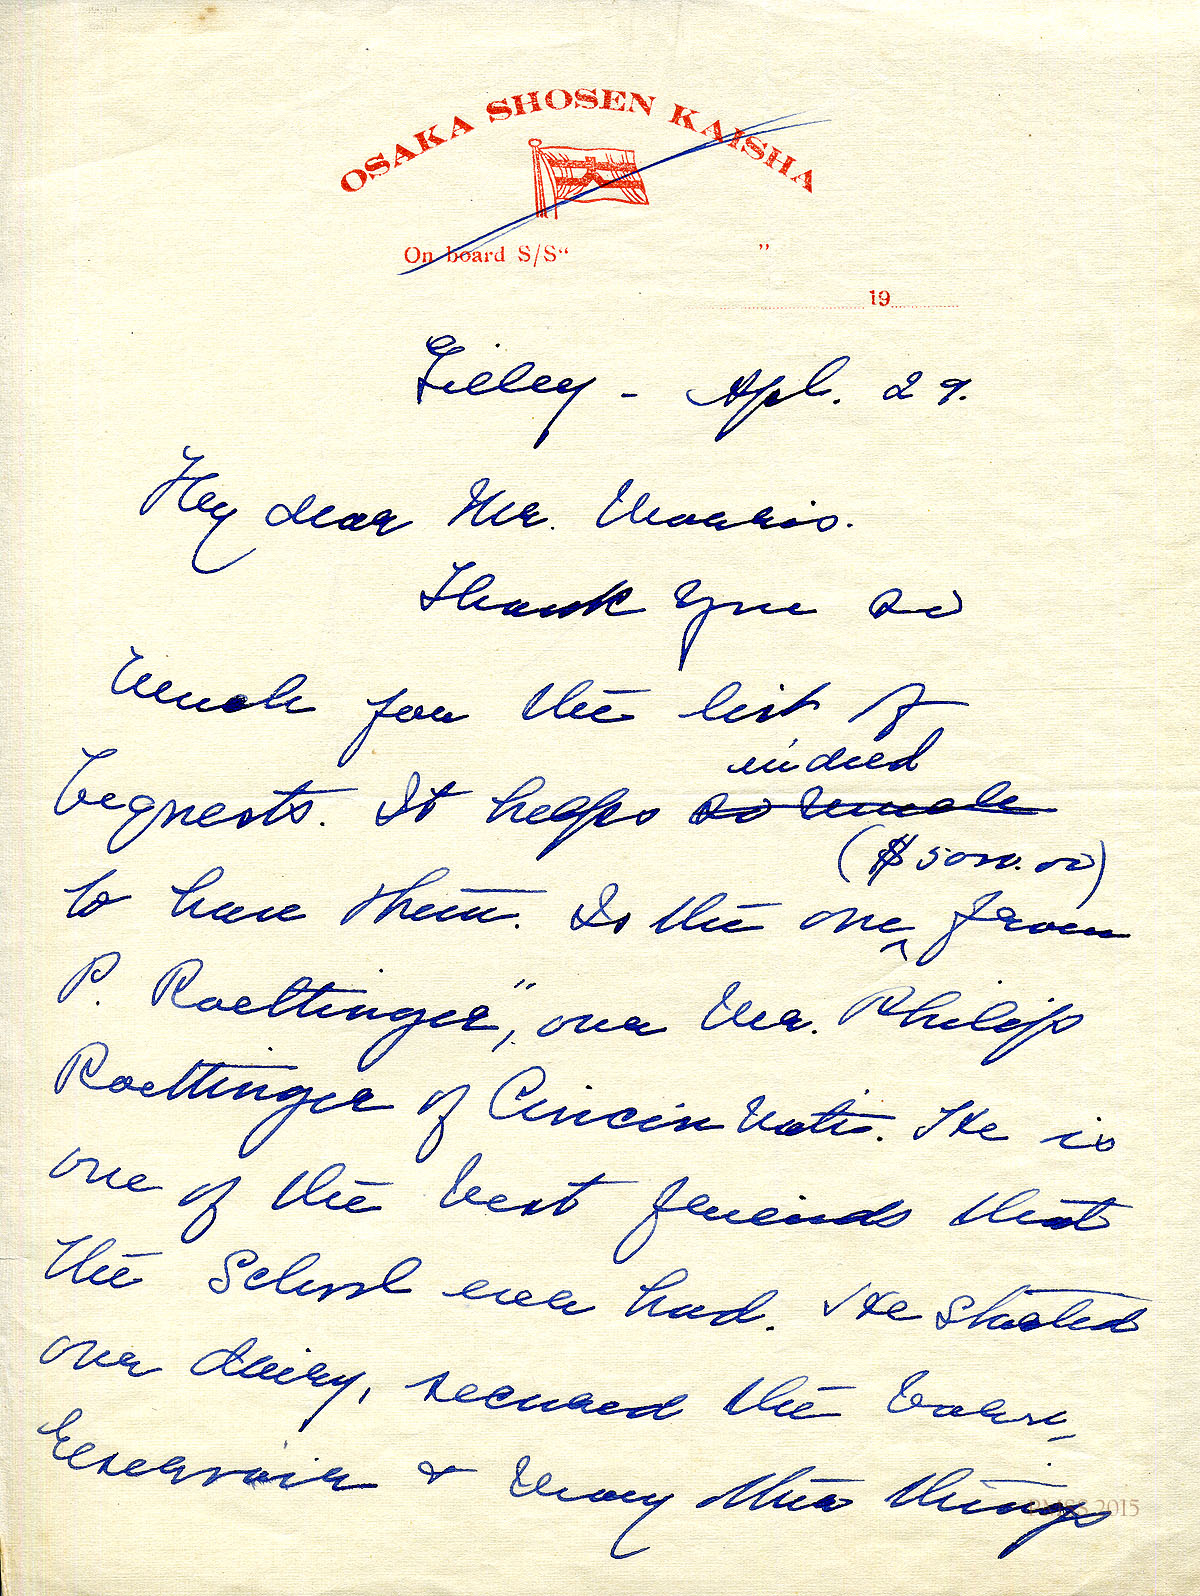 OSAKA SHOSEN KAISHA
On board S/S " "
19
Tilley - Apl. 29.
My dear Mr. Morris.
Thank you so
much for the list of
bequests. It helps so much indeed
to have them. Is the one ($5000.00) from
P. Roettinger", our Mr. Philip
Roettinger of Cincinnati. He is
one of the best friends that
the School ever had. He started
our dairy, secured the barn,
reservoir & many other things
PMSS 2015